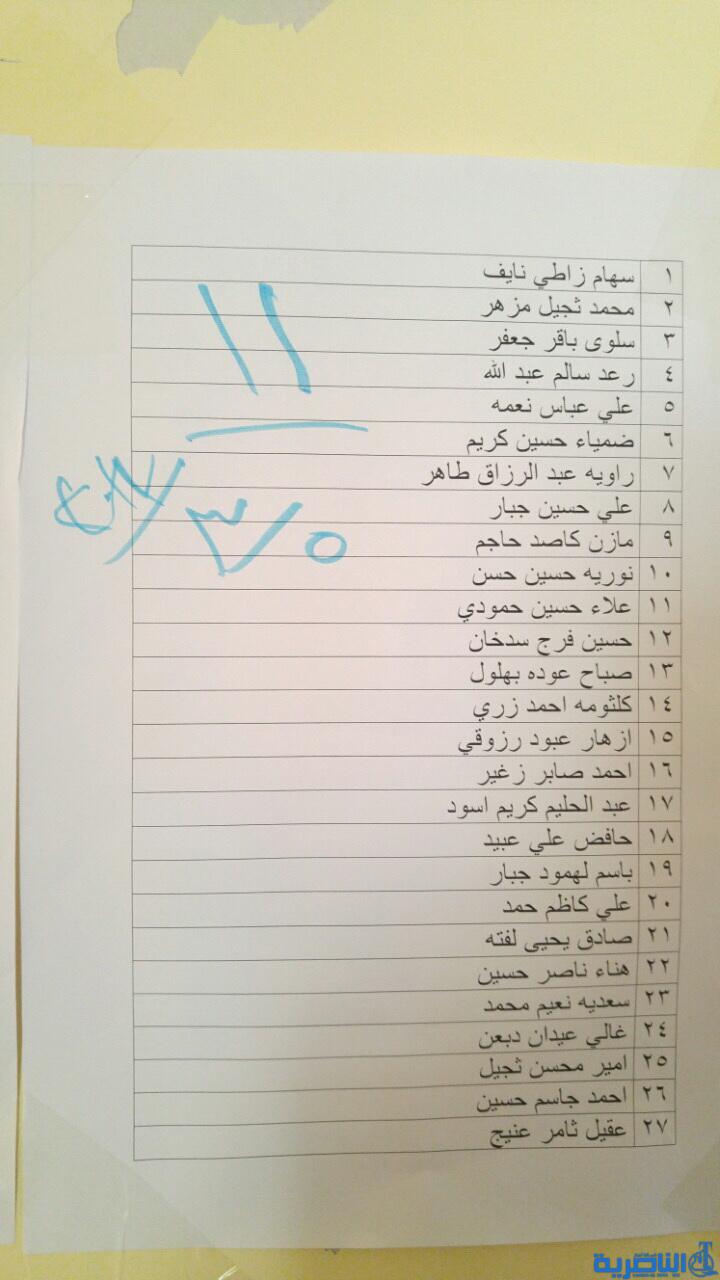 ١ سهام زاطي نايف
٢ محمد ثجيل مزهر
٣ سلوى باقر جعفر
٤ رعد سالم عبد الله
٥ علي عباس نعمه
٦ ضمياء حسين كريم
٧ راويه عبد الرزاق طاهر
٨ علي حسين جبار
٩ مازن كاصد حاجم
١٠ نوريه حسين حسن
١١ علاء حسين حمودي
١٢ حسين فرج سدخان
١٣ صباح عوده بهلول
١٤ كلثومه احمد زري
١٥ ازهار عبود رزوقي
١٦ احمد صابر زغير
١٧ عبد الحليم كريم اسود
١٨ حافض علي عبيد
١٩ باسم لهمود جبار
٢٠ علي كاظم حمد
٢١ صادق يحيى لفته
٢٢ هناء ناصر حسين
٢٣ سعديه نعيم محمد
٢٤ غالي عيدان دبعن
٢٥ امير محسن ثجيل
٢٦ احمد جاسم حسين
٢٧ عقيل ثامر عنيج
١١
٣/٥
الناصرية